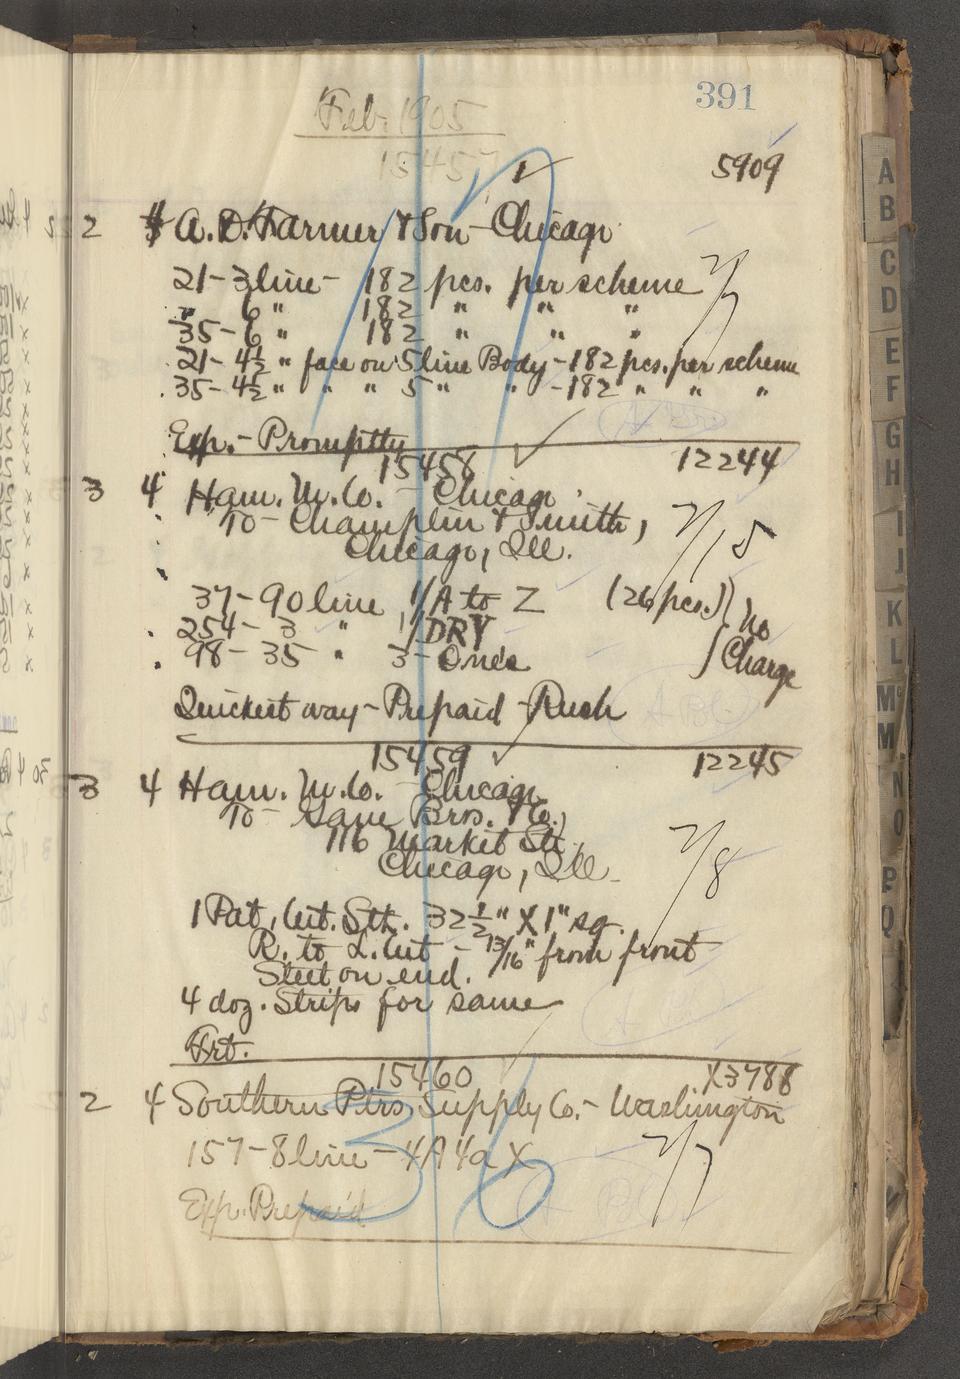 391
Feb. 1905
15457
5909
2 4 A. D. Farmer & Son - Chicago
2/7
21 - 3 line - 182 pcs. per scheme
" 6 " 182 " " "
35 - 6 " 182 " " "
21 - 4½ " face on 5 line Body - 182 pcs. per scheme
35 - 4½ " " " 5 " " - 182 " " "
Exp. - Promptly
15458 12244
3 4 Ham. M. Co. - Chicago
To - Champlin & Smith,
Chicago, Ill.
2/15
37 - 90 line 1/A to Z (26 pcs.)
254 - 3 " 1/DRY
98 - 35 " 3 - One's
No Charge
Quickest way - Prepaid - Rush
15459 12245
3 4 Ham. M. Co. - Chicago
To - Lane Bros. & Co.,
116 Market St.
Chicago, Ill.
2/8
1 Pat. Cut. Stk. 32½" X 1" sq.
R. to L. Cut - 13/16" from front
Steel on end.
4 doz. Strips for same
Frt.
15460 X3788
2 4 Southern Ptrs. Supply Co. - Washington
157 - 8 line - 4A 4a X
2/7
Exp. Prepaid
36
A
B
C
D
E
F
G
H
I
J
K
L
Mc
M
N
O
P
Q